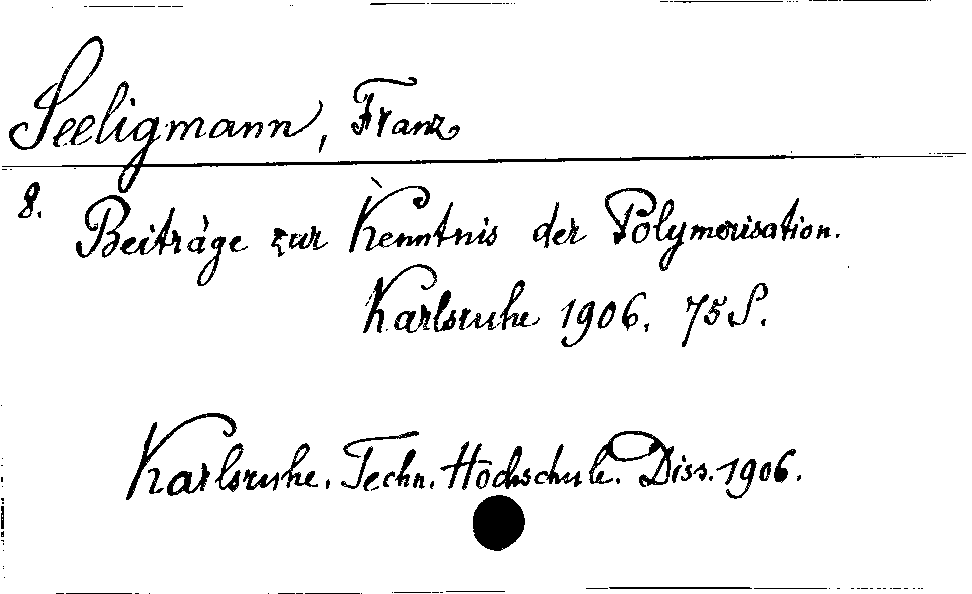 Seeligmann, Franz
8.
Beiträge zur Kenntnis der Polymerisation.
Karlsruhe 1906. 75 S.
Karlsruhe. Techn. Hochschule. Diss. 1906.